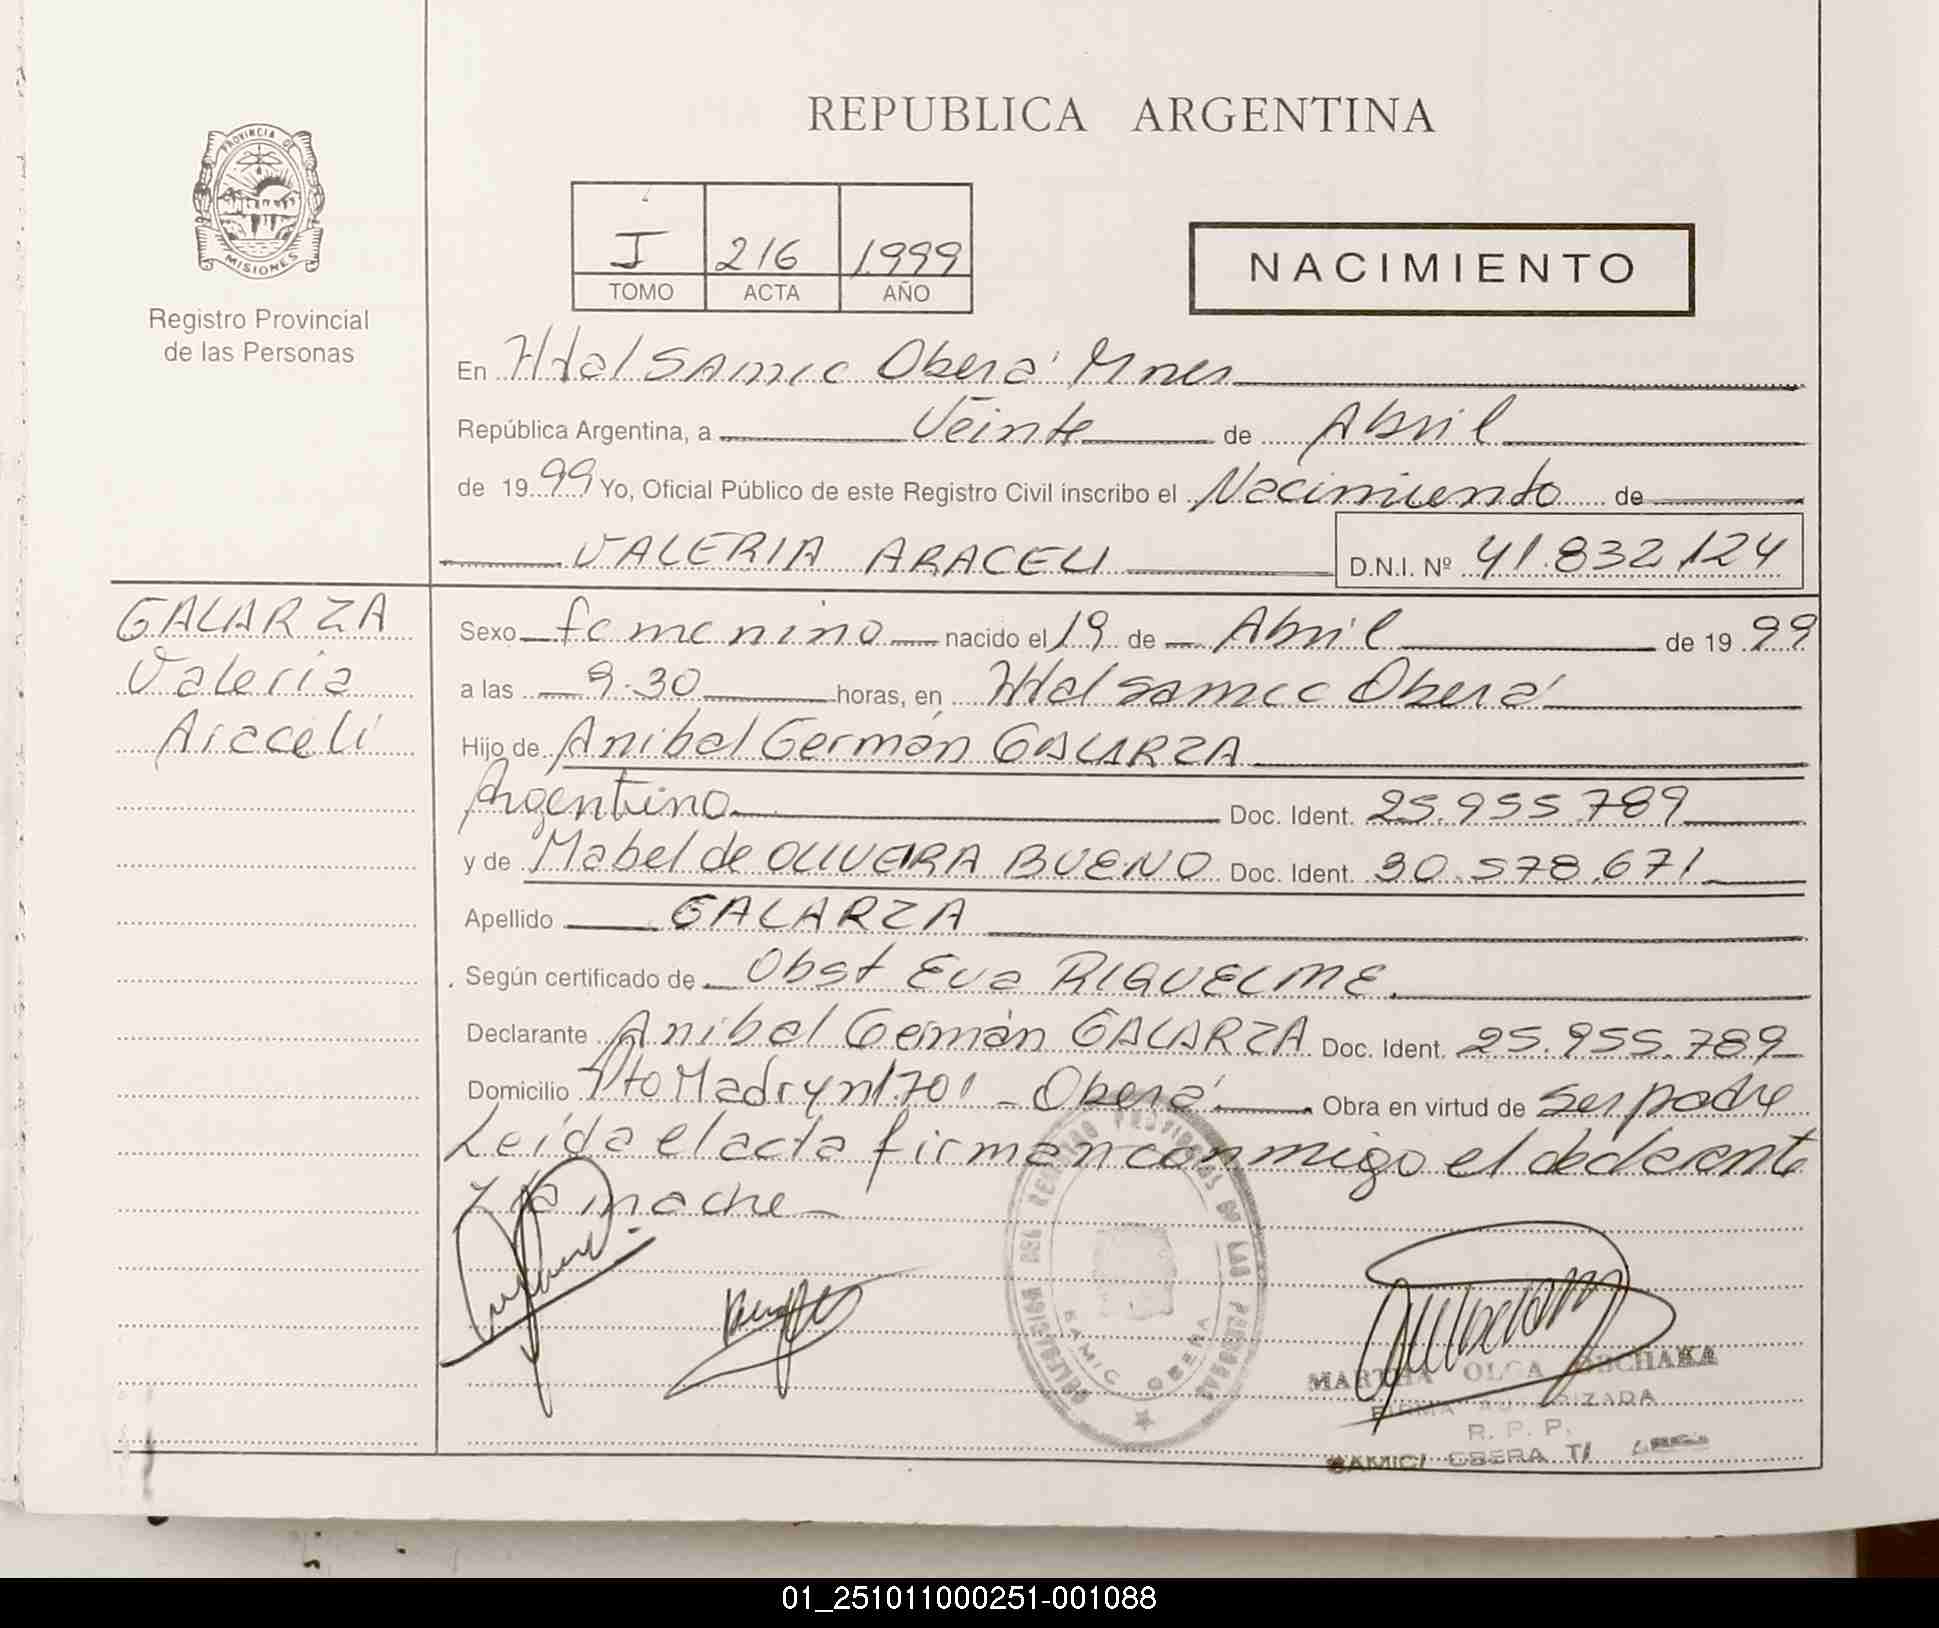 REPUBLICA ARGENTINA
PROVINCIA DE
MISIONES
Registro Provincial
de las Personas
I 216 1999
TOMO ACTA AÑO
NACIMIENTO
En Htal SAMIC Oberá Mnes
República Argentina, a Veinte de Abril
de 1999 Yo, Oficial Público de este Registro Civil inscribo el Nacimiento de
VALERIA ARACELI D.N.I. Nº 41.832.124
GALARZA
Valeria
Araceli
Sexo femenino nacido el 19 de Abril de 1999
a las 9.30 horas, en Htal Samic Oberá
Hijo de Anibal Germán GALARZA
Argentino Doc. Ident. 25.955.789
y de Mabel de OLIVEIRA BUENO Doc. Ident. 30.578.671
Apellido GALARZA
Según certificado de Obst Eva RIQUELME.
Declarante Anibal Germán GALARZA Doc. Ident. 25.955.789
Domicilio Pto Madryn 1701 - Oberá Obra en virtud de ser padre
Leída el acta firman conmigo el declarante
y la madre -
DELEGACION DEL REGISTRO PROVINCIAL DE LAS PERSONAS
SAMIC OBERA
MARTHA OLGA
FIRMA AUTORIZADA
R. P. P.
SAMIC/ OBERA
01_251011000251-001088